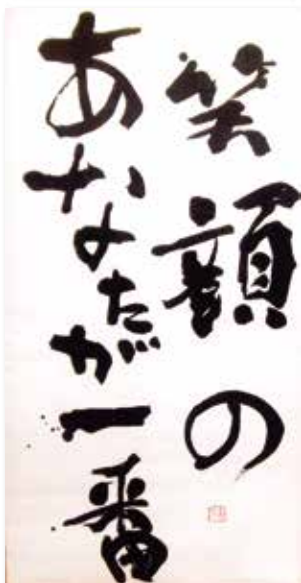 笑顔の
あなたが一番